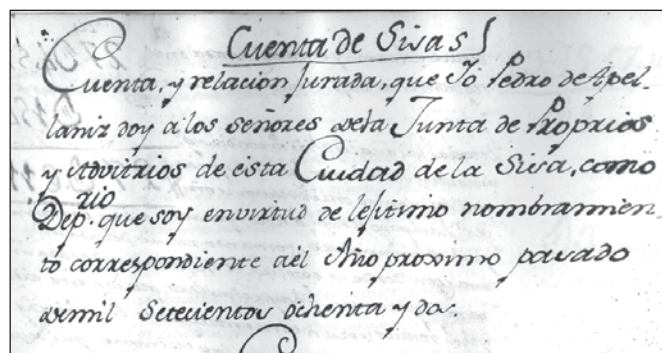 Cuenta de Sisas
Cuenta, y relacion Jurada, que Yó Pedro de Apel-
laniz doy á los señores dela Junta de Proprios
y Advitrios de ésta Ciudad de la Sisa, como
Dep.rio que soy envirtud de lexitimo nombramien-
to correspondiente aél Año proximo pasado
demil Setecientos óchenta y dos.